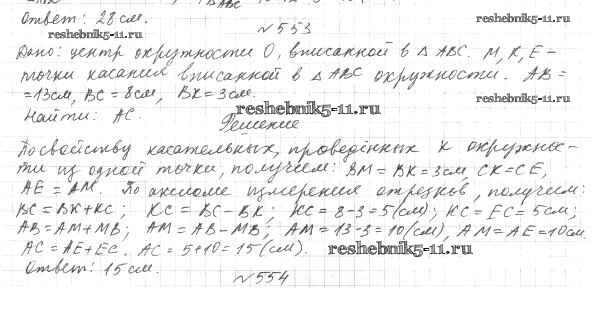 Ответ: 28 см.
reshebnik5-11.ru
№553
reshebnik5-11.ru
Дано: центр окружности О, вписанной в △ ABC. M, K, E –
точки касания вписанной в △ ABC окружности. AB =
= 13см, BC = 8см, BK = 3см.
reshebnik5-11.ru
Найти: AC.
reshebnik5-11.ru
Решение
По свойству касательных, проведённых к окружнос-
ти из одной точки, получаем: BM = BK = 3см, CK = CE,
AE = AM. По аксиоме измерения отрезков, получим:
BC = BK + KC; KC = BC – BK; KC = 8 – 3 = 5(см); KC = EC = 5см;
AB = AM + MB; AM = AB – MB; AM = 13 – 3 = 10(см), AM = AE = 10см.
AC = AE + EC. AC = 5 + 10 = 15(см).
reshebnik5-11.ru
Ответ: 15см.
№554